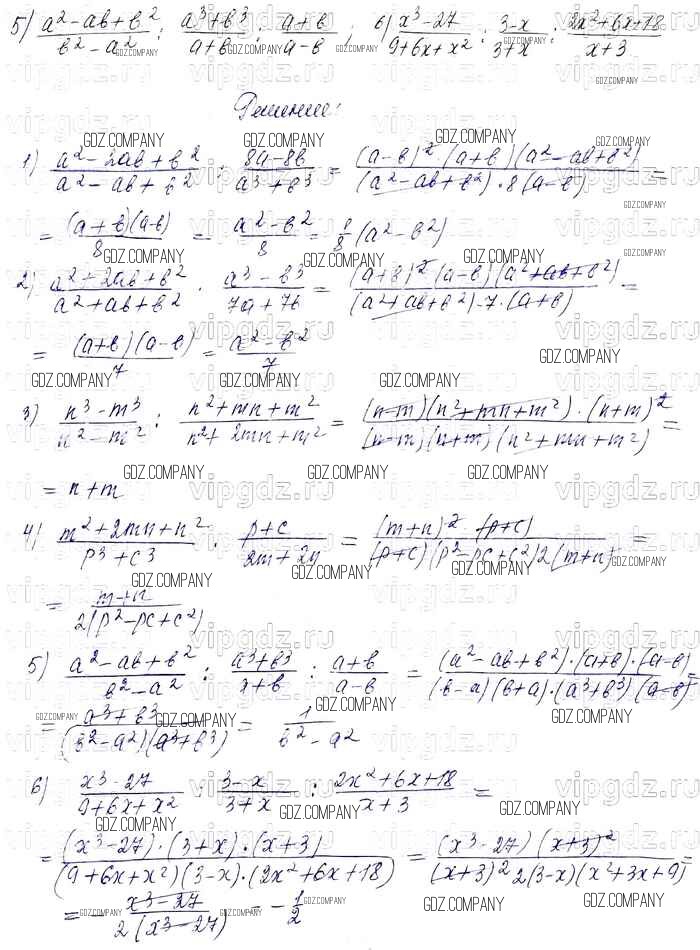 5) (a² - ab + b²)/(b² - a²) : (a³ + b³)/(a + b) : (a + b)/(a - b) ; 6) (x³ - 27)/(9 + 6x + x²) : (3 - x)/(3 + x) : (2x² + 6x + 18)/(x + 3)
Решение:
1) (a² - 2ab + b²)/(a² - ab + b²) : (8a - 8b)/(a³ + b³) = ((a - b)² (a + b)(a² - ab + b²))/((a² - ab + b²) · 8(a - b)) =
= ((a + b)(a - b))/8 = (a² - b²)/8 = 1/8 (a² - b²)
2) (a² + 2ab + b²)/(a² + ab + b²) · (a³ - b³)/(7a + 7b) = ((a + b)² (a - b)(a² + ab + b²))/((a² + ab + b²) · 7 · (a + b)) =
= ((a + b)(a - b))/7 = (a² - b²)/7
3) (n³ - m³)/(n² - m²) : (n² + mn + m²)/(n² + 2mn + m²) = ((n - m)(n² + mn + m²) · (n + m)²)/((n - m)(n + m)(n² + mn + m²)) =
= n + m
4) (m² + 2mn + n²)/(p³ + c³) · (p + c)/(2m + 2n) = ((m + n)² · (p + c))/((p + c)(p² - pc + c²)2(m + n)) =
= (m + n)/(2(p² - pc + c²))
5) (a² - ab + b²)/(b² - a²) : (a³ + b³)/(x + b) : (a + b)/(a - b) = ((a² - ab + b²) · (a + b) · (a - b))/((b - a)(b + a) · (a³ + b³)(a - b)) =
= (a³ + b³)/((b² - a²)(a³ + b³)) = 1/(b² - a²)
6) (x³ - 27)/(9 + 6x + x²) : (3 - x)/(3 + x) : (2x² + 6x + 18)/(x + 3) =
= ((x³ - 27) · (3 + x) · (x + 3))/((9 + 6x + x²)(3 - x) · (2x² + 6x + 18)) = ((x³ - 27)(x + 3)²)/((x + 3)² 2(3 - x)(x² + 3x + 9)) =
= - (x³ - 27)/(2(x³ - 27)) = - 1/2
vipgdz.ru
GDZ.COMPANY